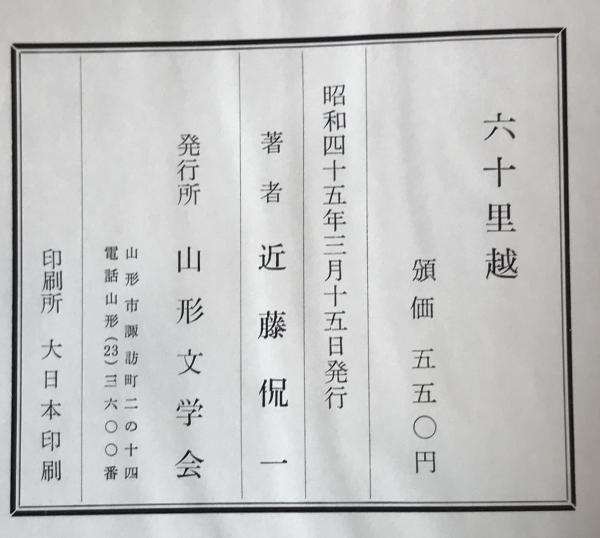 六十里越
頒価 五五〇円
昭和四十五年三月十五日発行
著者 近藤侃一
発行所 山形文学会
山形市諏訪町二の十四
電話山形(23)三六〇〇番
印刷所 大日本印刷